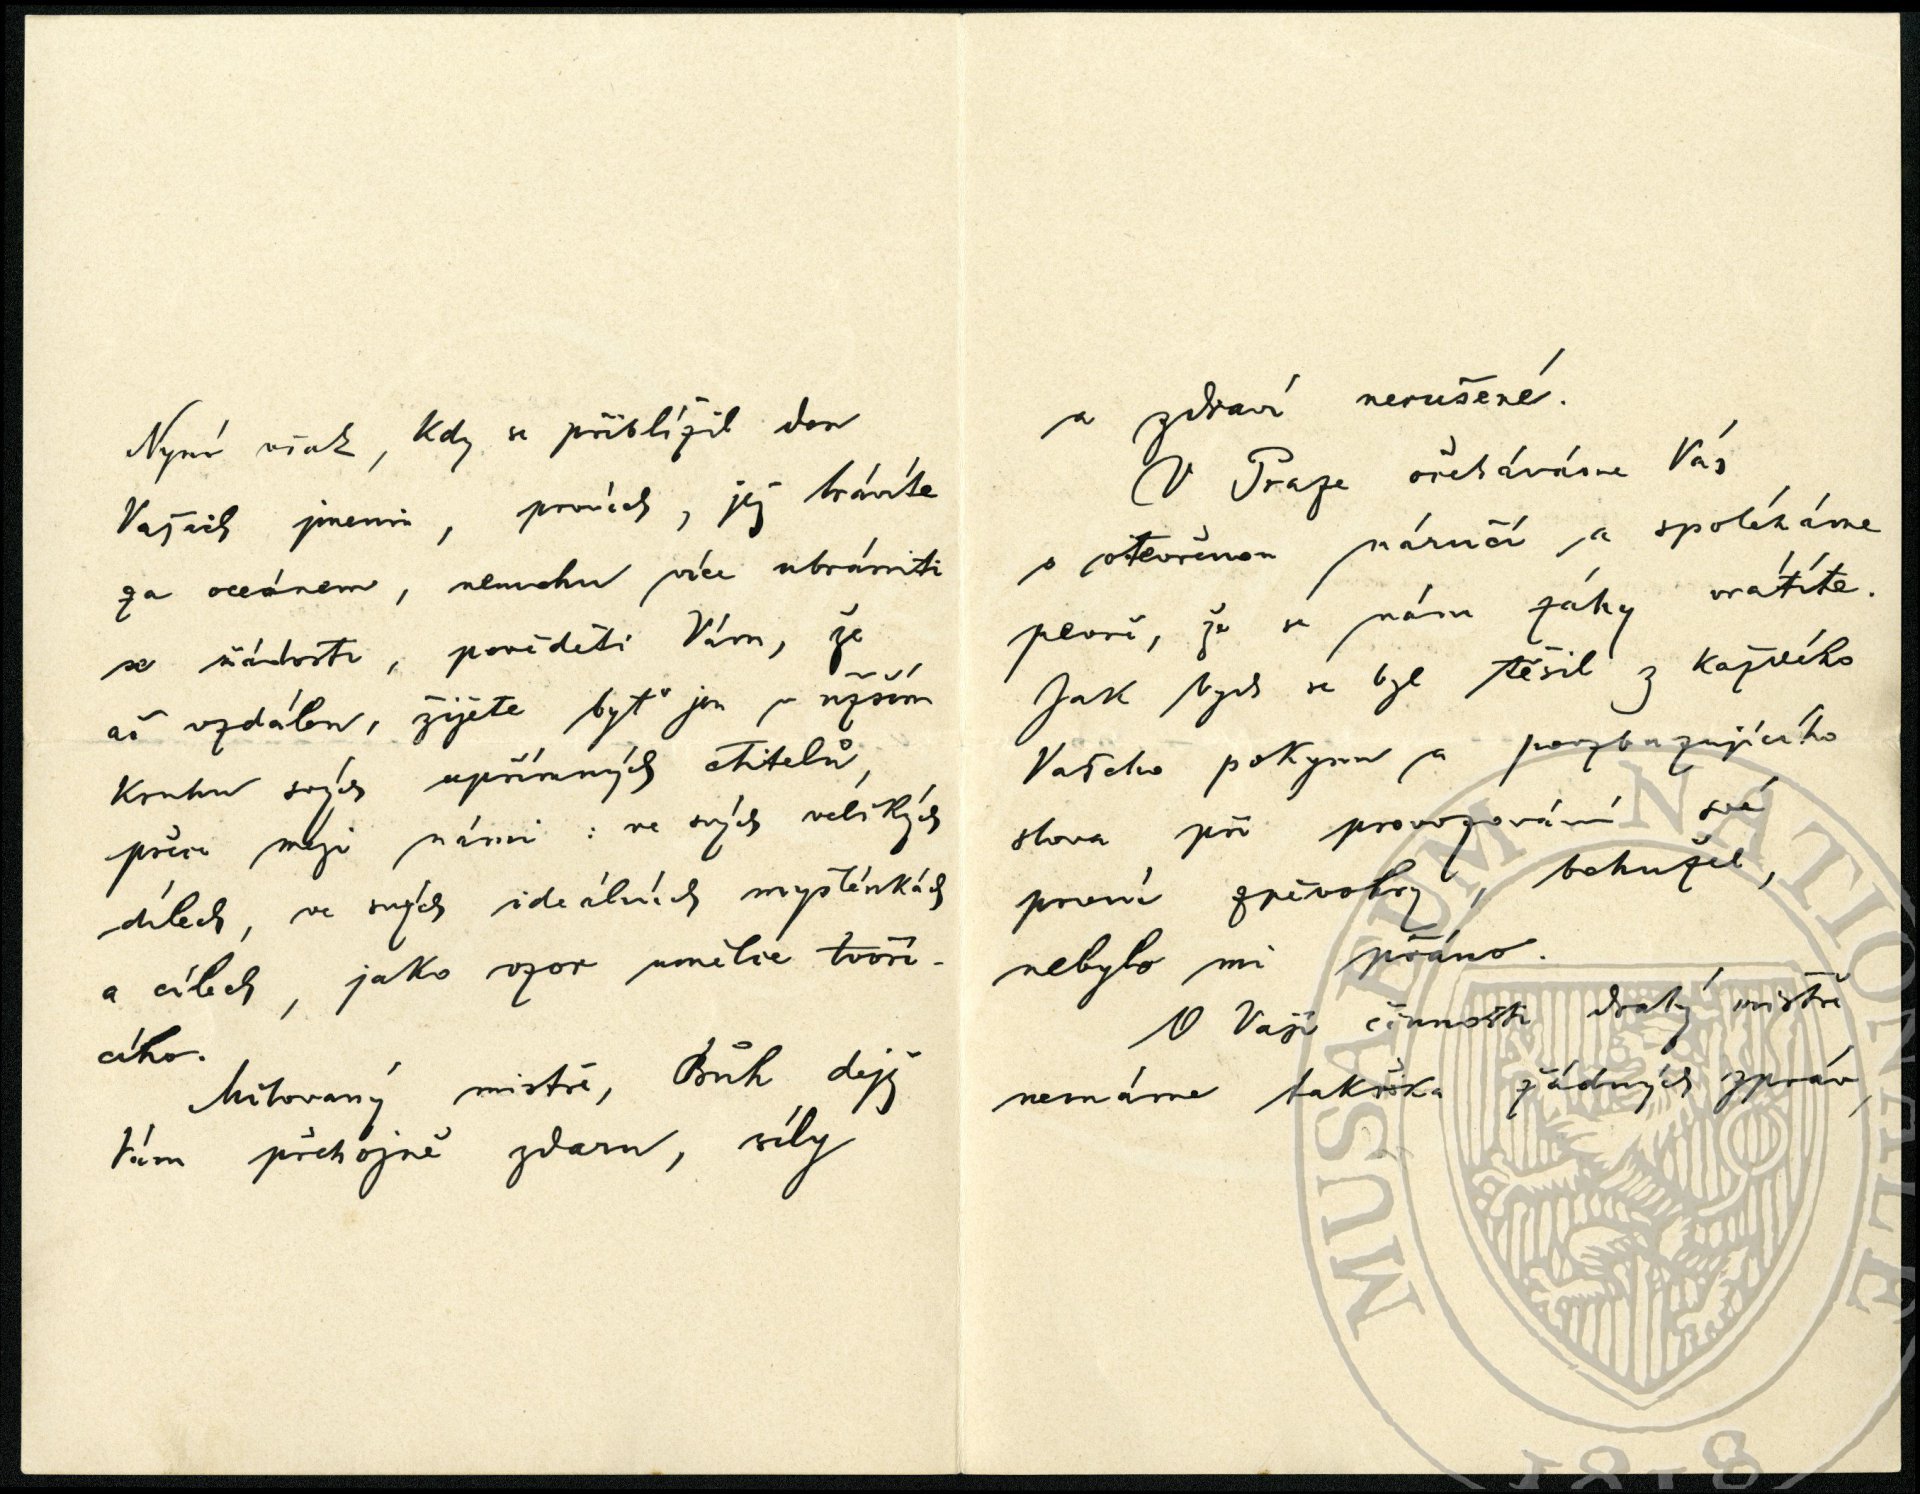 Nyní však, kdy se přiblížil den
Vašich jmenin, prvních, jež trávíte
za oceánem, nemohu více ubrániti
se žádosti, pověděti Vám, že
ač vzdálen, žijete byť jen v užším
kruhu svých upřímných ctitelů,
přece mezi námi: ve svých velikých
dílech, ve svých ideálních myšlénkách
a cílech, jako vzor umělce tvoří-
cího.
Milovaný mistře, Bůh dejž
Vám přehojně zdaru, síly
a zdraví nerušené.
V Praze očekáváme Vás
s otevřenou náručí a spoléháme
pevně, že se nám záhy vrátíte.
Jak bych se byl těšil z každého
Vašeho pokynu a povzbuzujícího
slova při provozování své
první zpěvohry, bohužel,
nebylo mi přáno.
O Vaší činnosti drahý mistře
nemáme takřka žádných zpráv,
MUSAEUM NATIONALE
1818